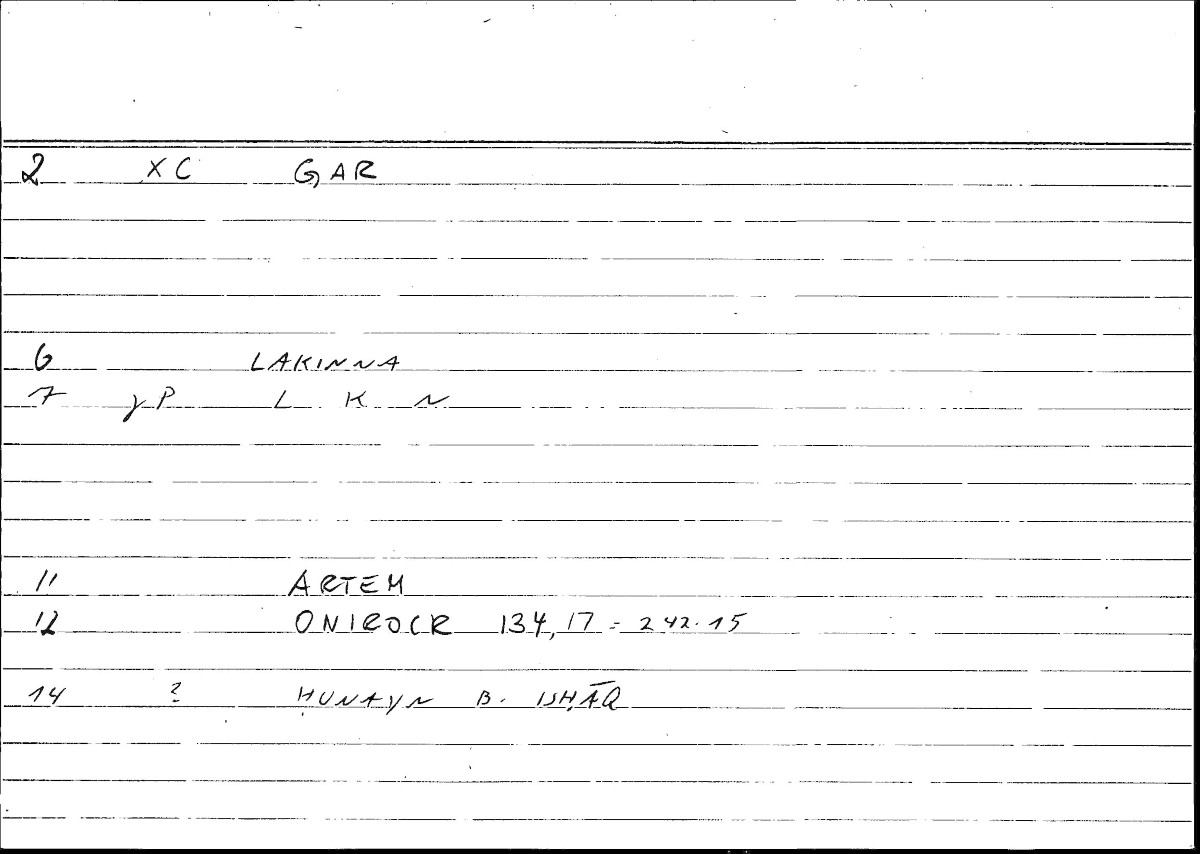 2 XC GAR
6 LAKINNA
7 γP L K N
11 ARTEM
12 ONIROCR 134,17 = 242.15
14 ? ḤUNAYN B. ISḤĀQ